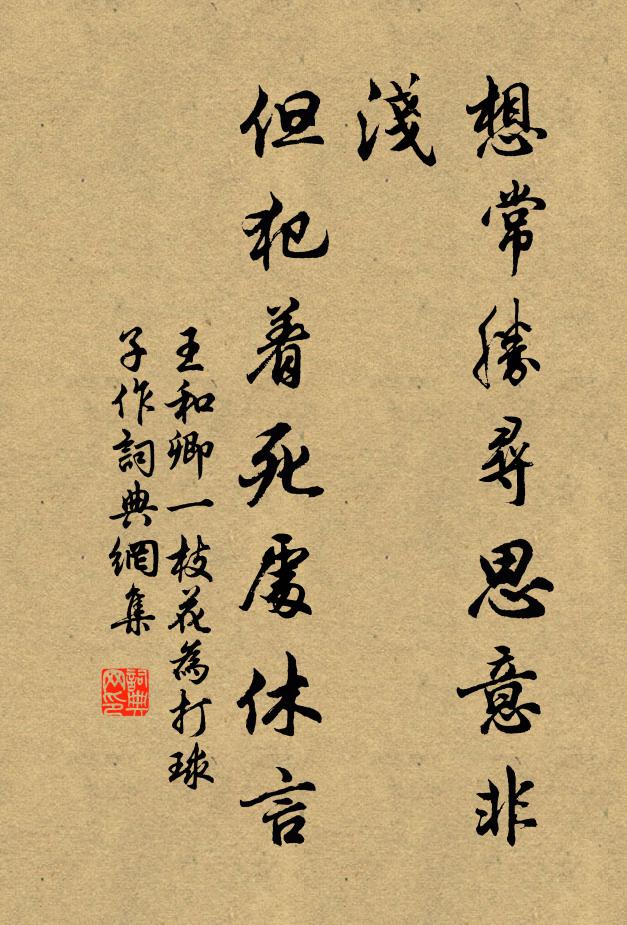 想常勝尋思意非
淺
但犯着死處休言
王和卿一枝花為打球
子作詞典網集
詞典網印